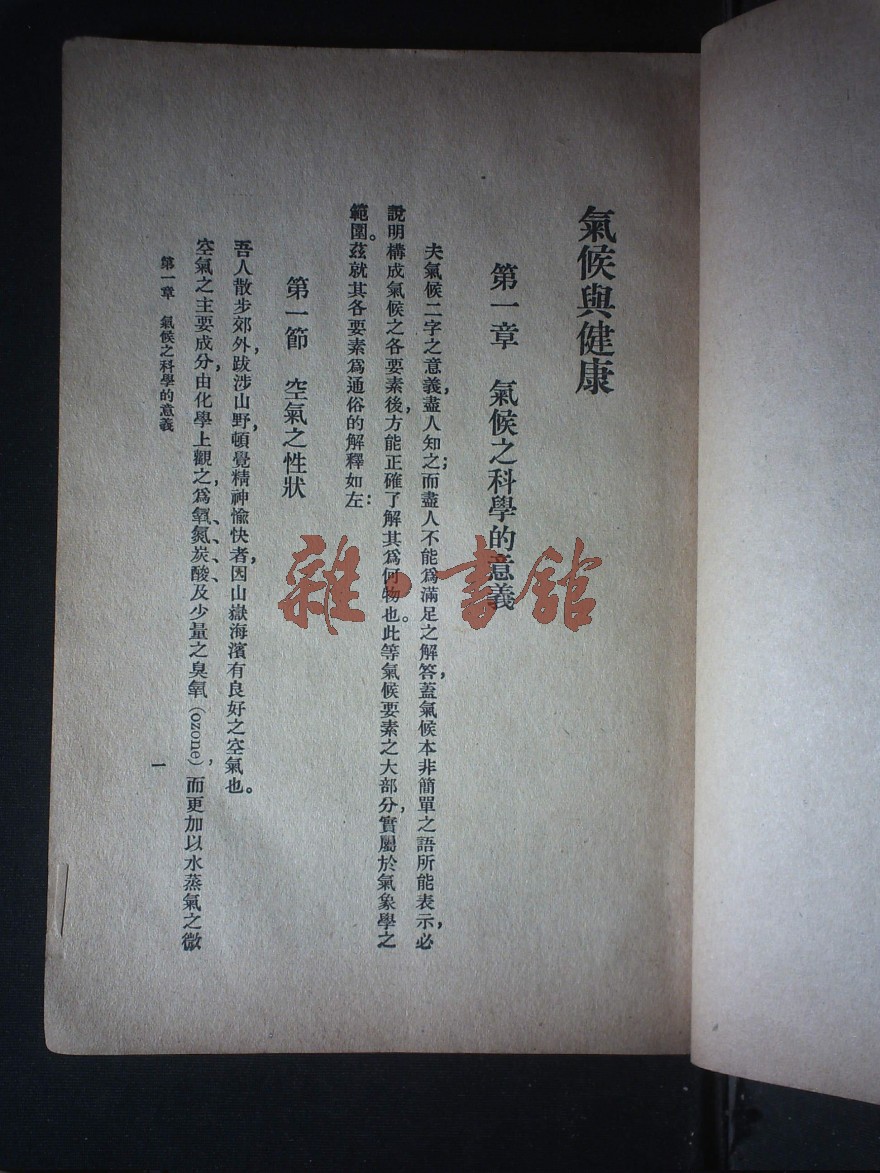 氣候與健康
第一章　氣候之科學的意義
夫氣候二字之意義，盡人知之；而盡人不能爲滿足之解答，蓋氣候本非簡單之語所能表示，必
說明構成氣候之各要素後，方能正確了解其爲何物也。此等氣候要素之大部分，實屬於氣象學之
範圍。茲就其各要素爲通俗的解釋如左：
第一節　空氣之性狀
吾人散步郊外，跋涉山野，頓覺精神愉快者，因山嶽海濱有良好之空氣也。
空氣之主要成分，由化學上觀之，爲氧、氮、炭酸、及少量之臭氧（ozone），而更加以水蒸氣之微
第一章　氣候之科學的意義
一
雜·書館